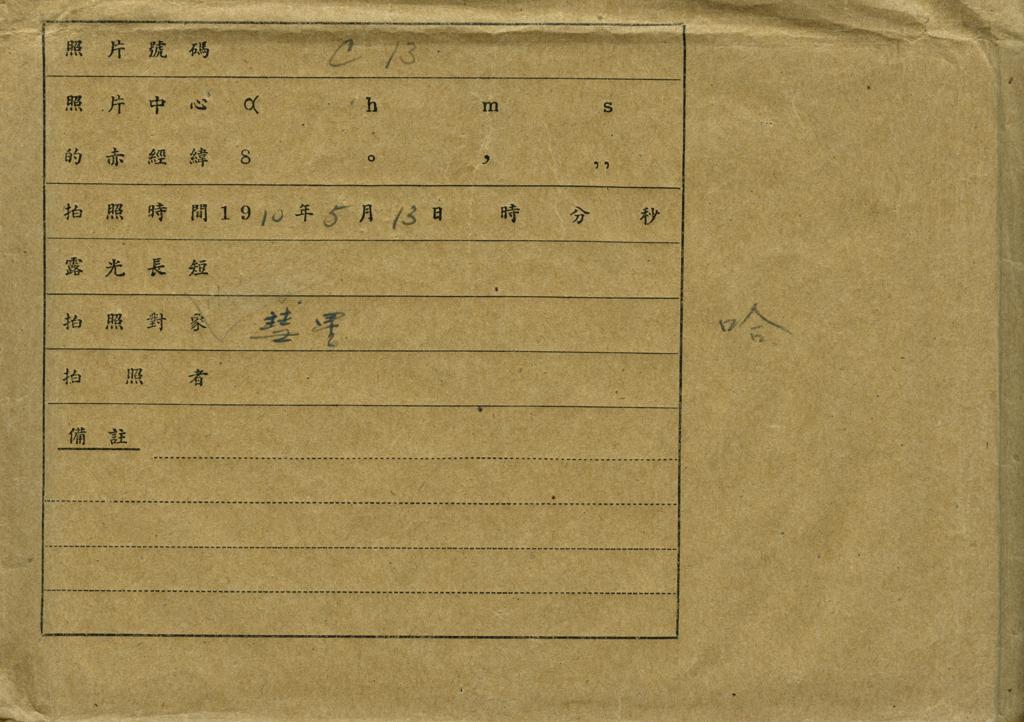 照片號碼 C 13
照片中心 α h m s
的赤經緯 δ ° ′ ″
拍照時間1910年5月13日 時 分 秒
露光長短
拍照對象 彗星
哈
拍照者
備註